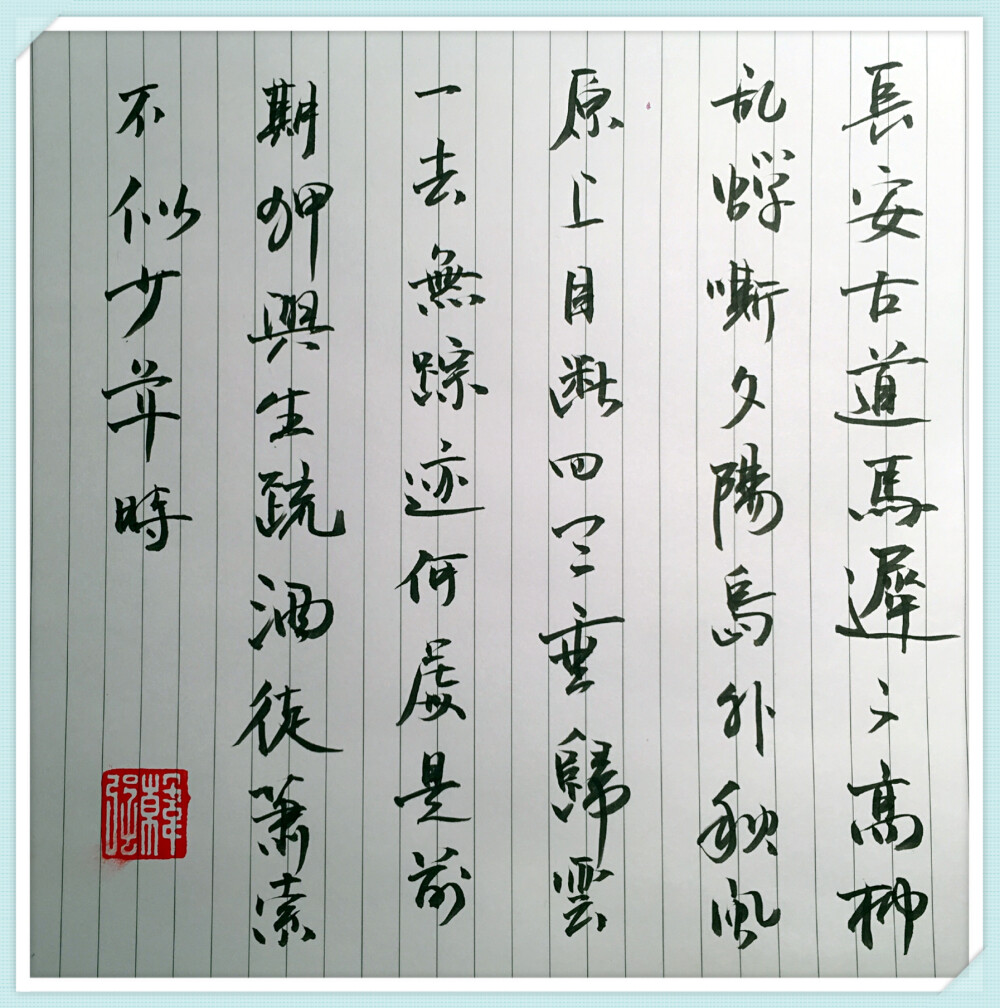 長安古道馬遲〻高柳
乱蝉嘶夕陽鳥外秋風
原上目断四天垂歸雲
一去無踪迹何處是前
期狎興生疏酒徒蕭索
不似少年時